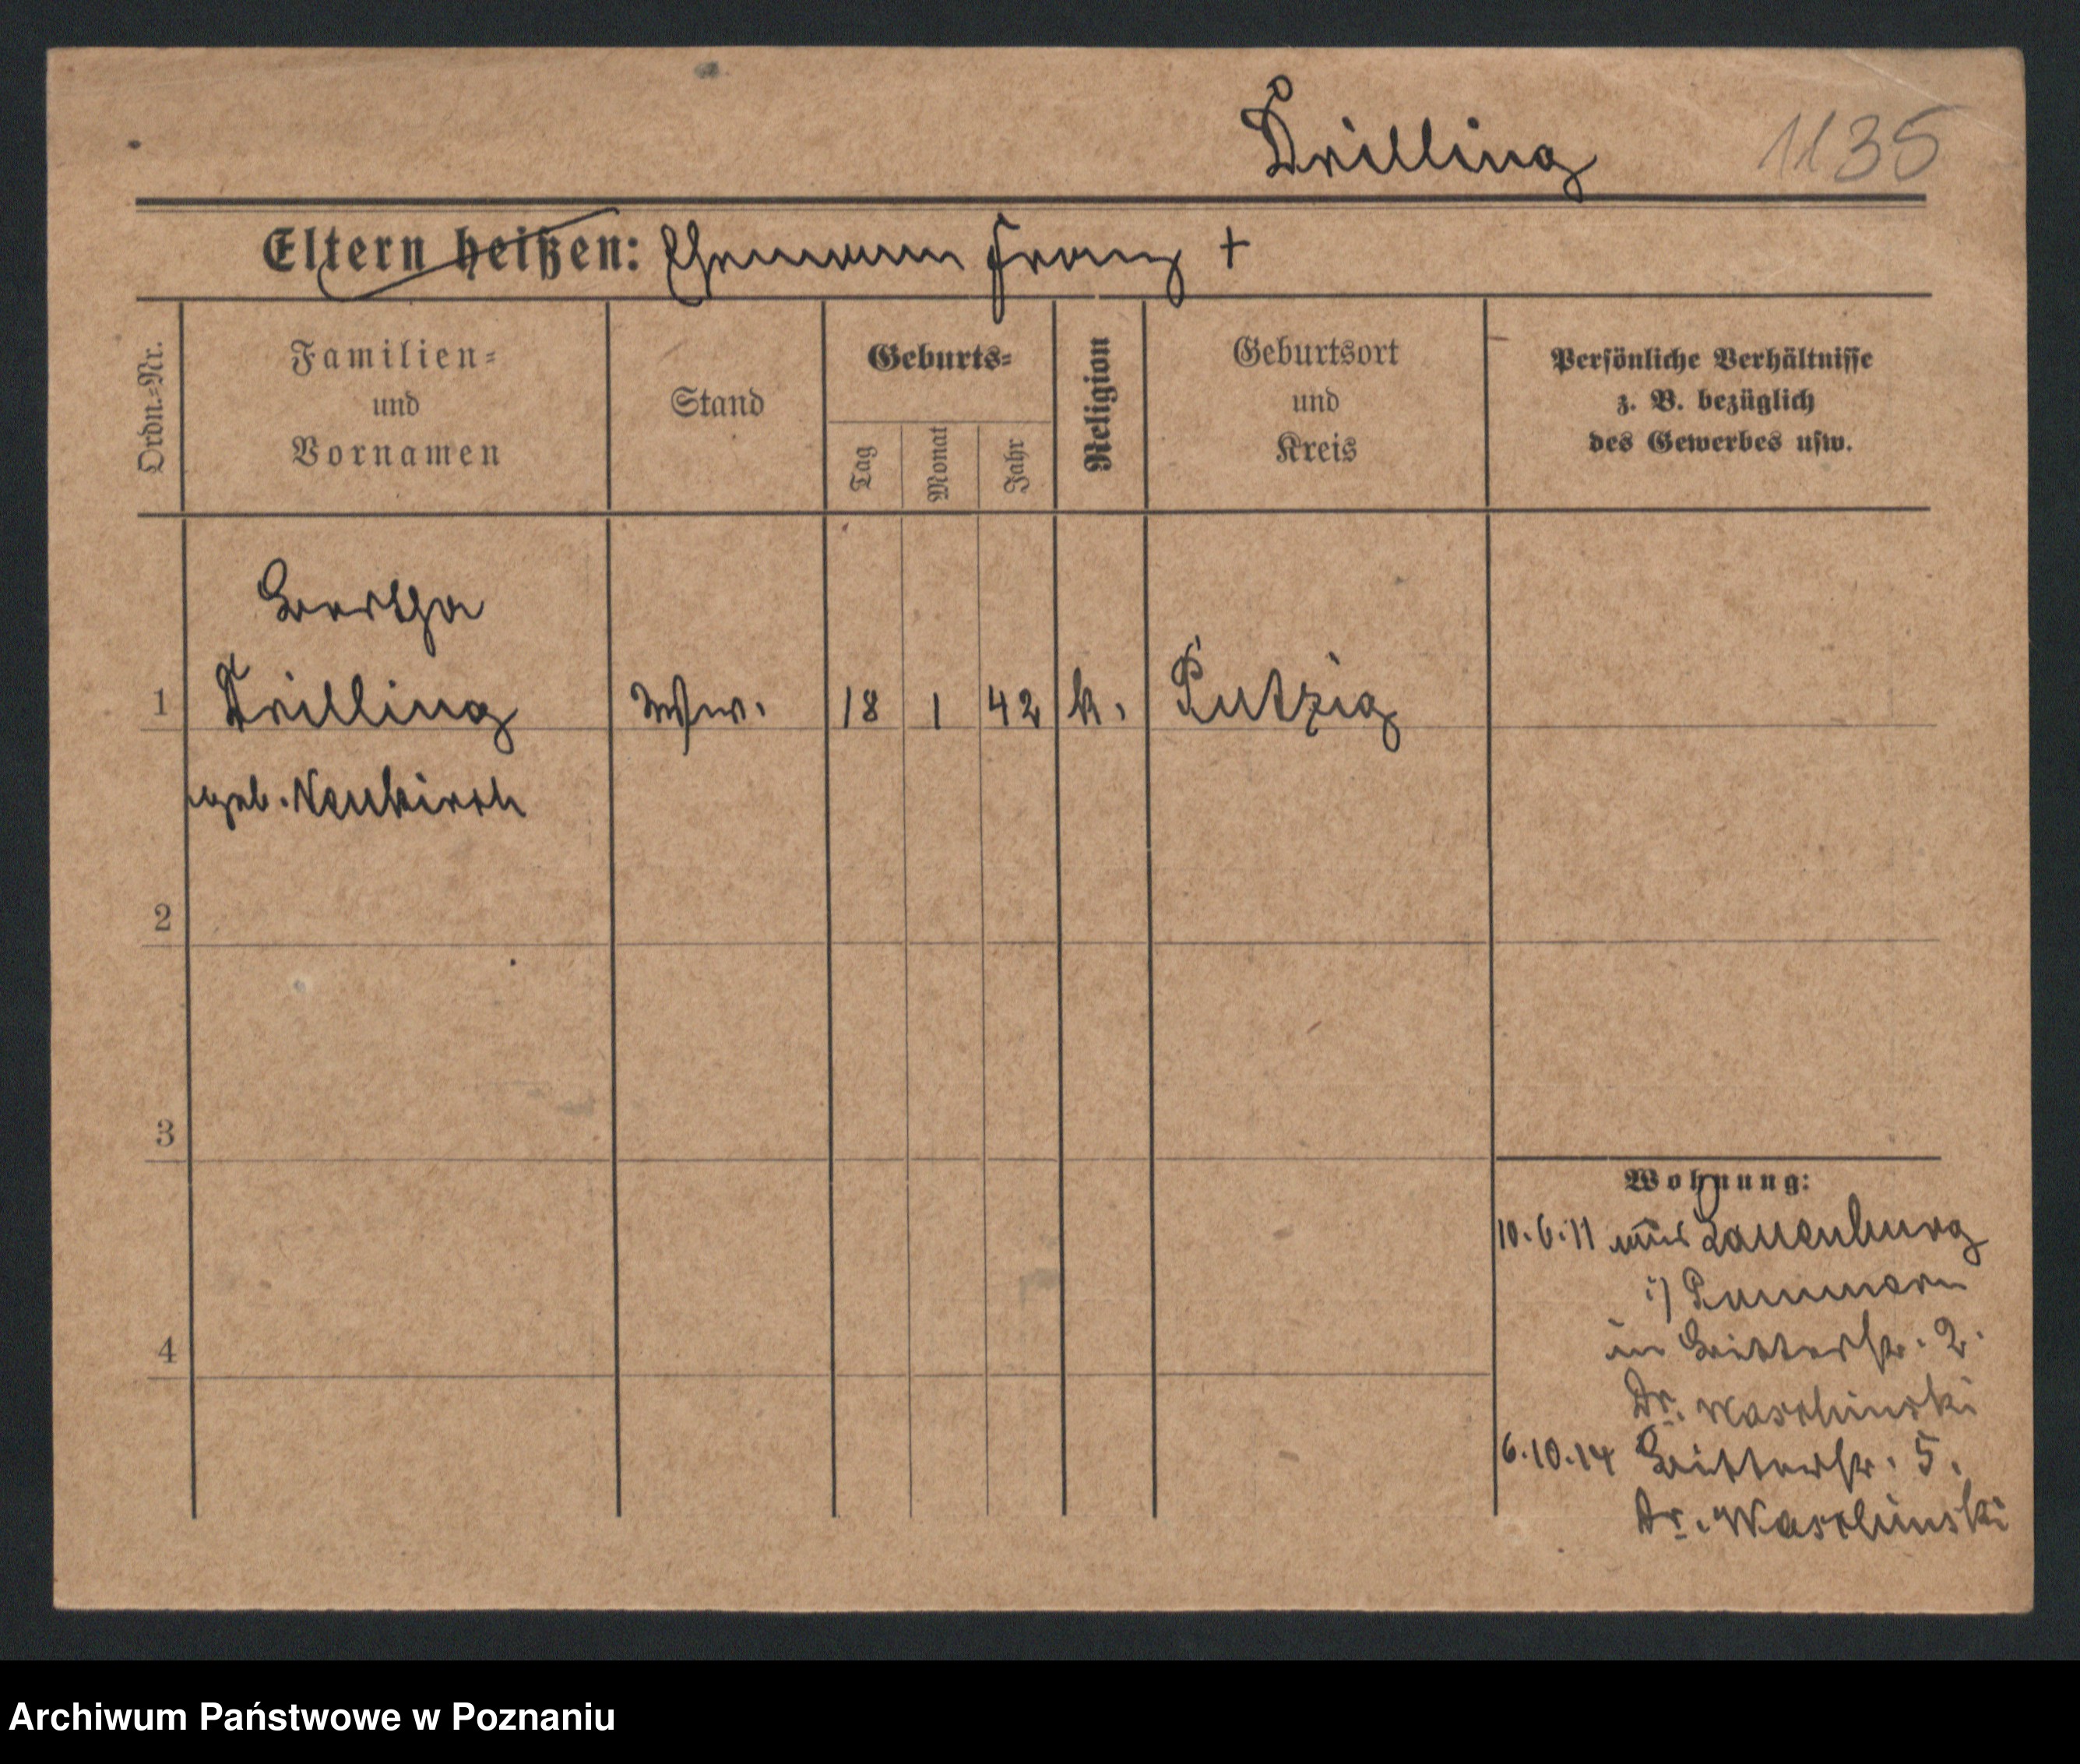 Drilling 1135
Eltern heißen: Ehemann Franz +
Ordn.=Nr.
Familien=
und
Vornamen
Stand
Geburts=
Tag
Monat
Jahr
Religion
Geburtsort
und
Kreis
Persönliche Verhältnisse
z. B. bezüglich
des Gewerbes usw.
Bertha
1 Drilling Ww. 18 1 42 k. Putzig
geb. Neukirch
2
3
4
Wohnung:
10.6.11 aus Lauenburg
i/ Pommern
in Ritterstr. 2.
Dr. Waschinski
6.10.14 Ritterstr. 5.
Dr. Waschinski
Archiwum Państwowe w Poznaniu